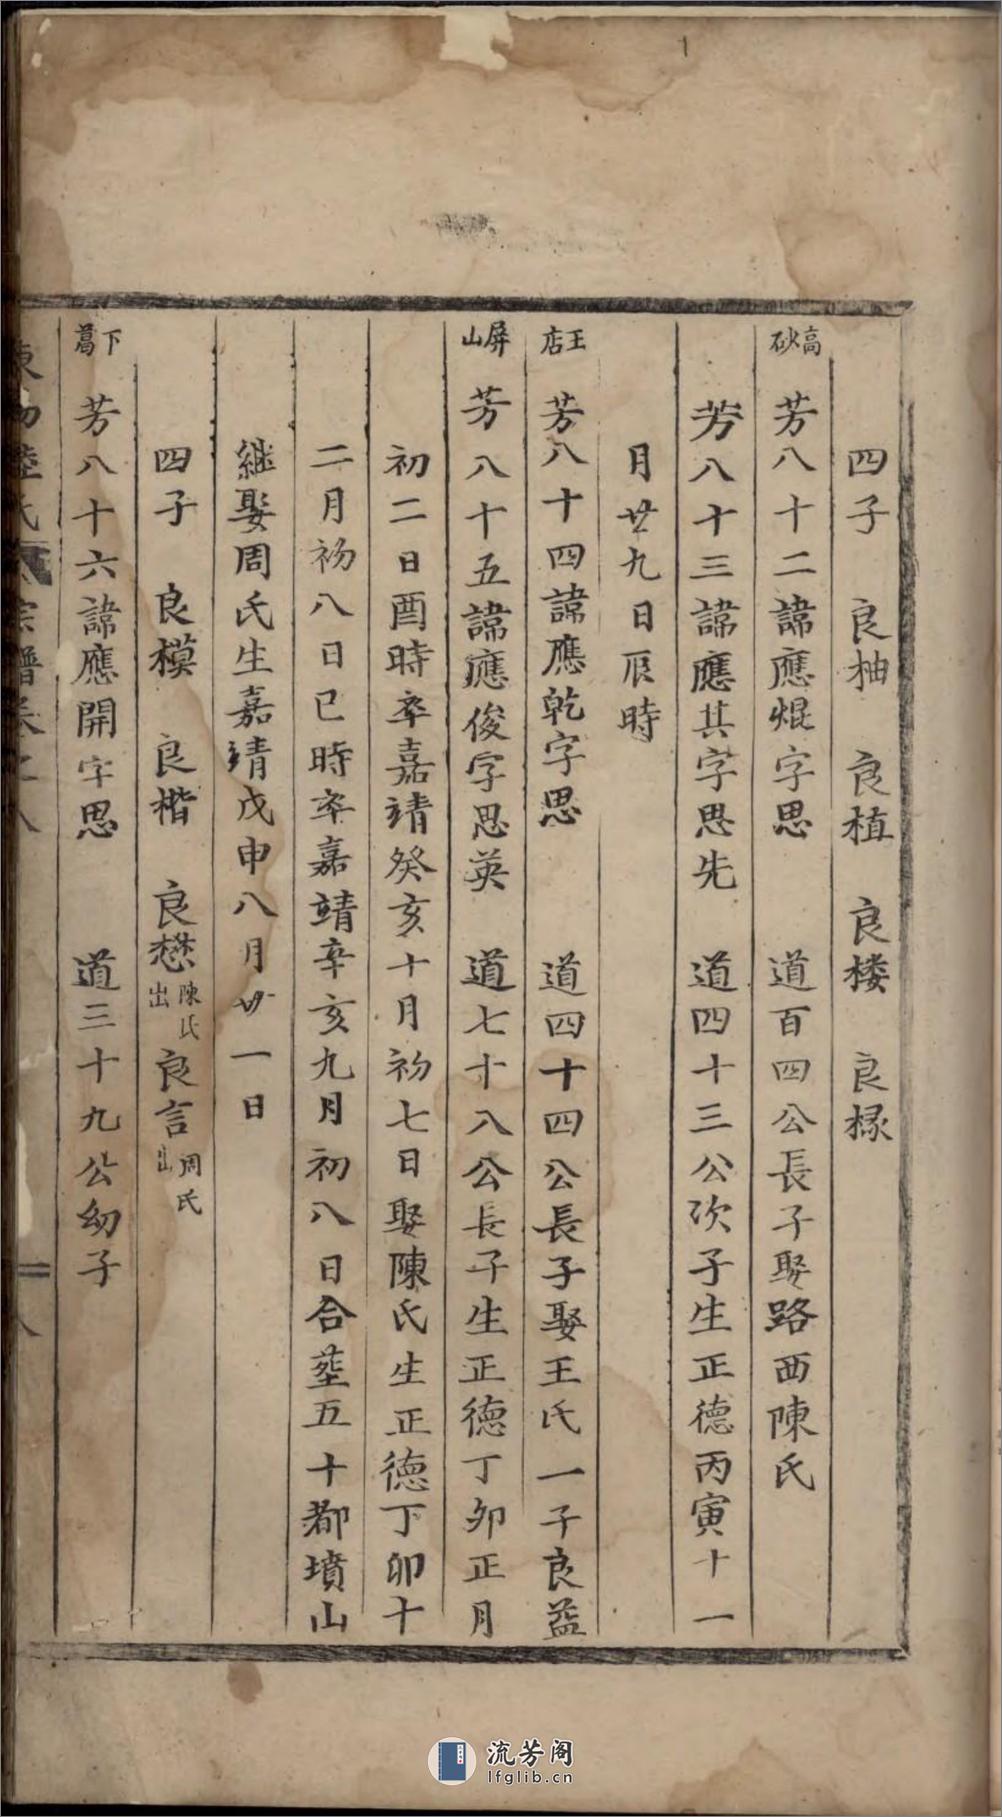 四子　良柚　良植　良楼　良椽
高砂　芳八十二諱應焜字思　道百四公長子娶路西陳氏
芳八十三諱應其字思先　道四十三公次子生正德丙寅十一
月廿九日辰時
王店　芳八十四諱應乾字思　道四十四公長子娶王氏一子良益
屏山　芳八十五諱應俊字思英　道七十八公長子生正德丁夘正月
初二日酉時卒嘉靖癸亥十月初七日娶陳氏生正德丁卯十
二月初八日巳時卒嘉靖辛亥九月初八日合塟五十都墳山
继娶周氏生嘉靖戊申八月廿一日
四子　良模　良楷　良懋陳氏出　良言周氏出
下葛　芳八十六諱應開字思　道三十九公幼子
氏宗譜卷之八
八
流芳阁
lfglib.cn